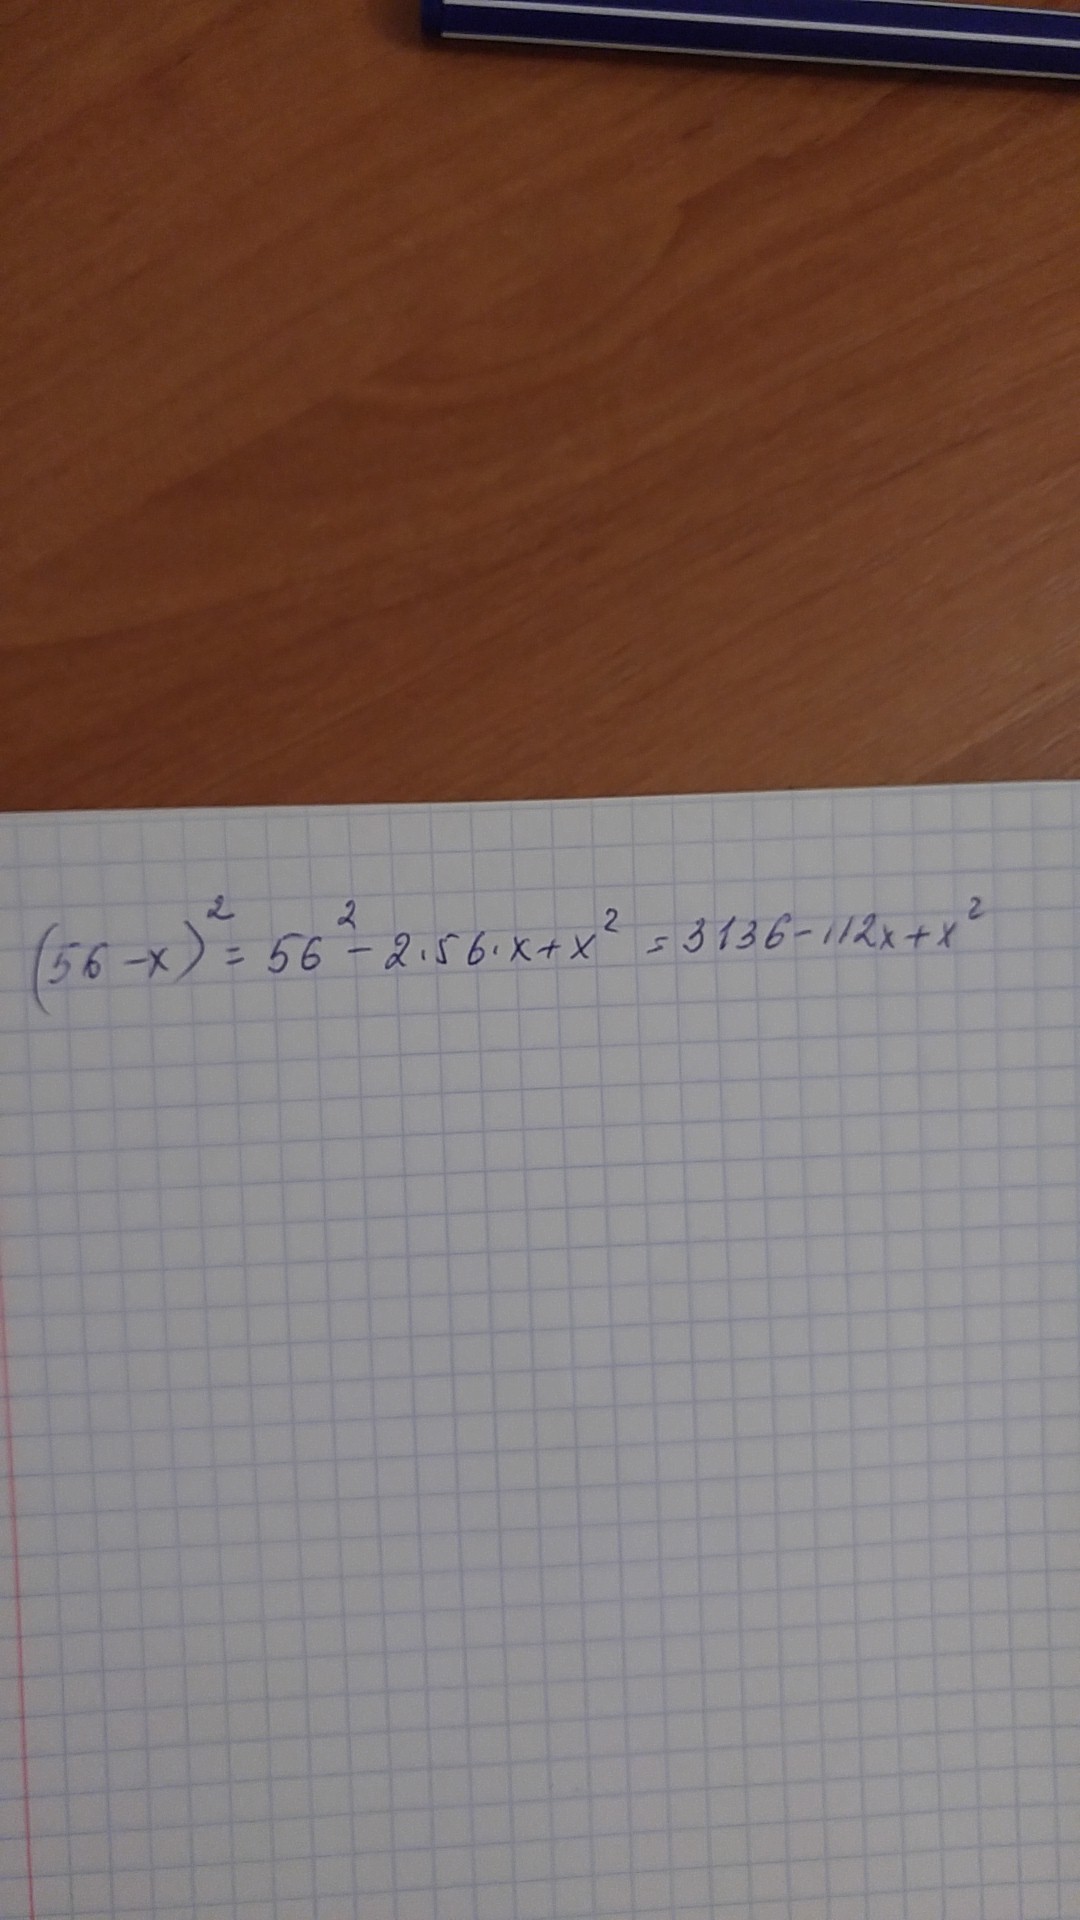 (56-x)² = 56² - 2·56·x + x² = 3136 - 112x + x²